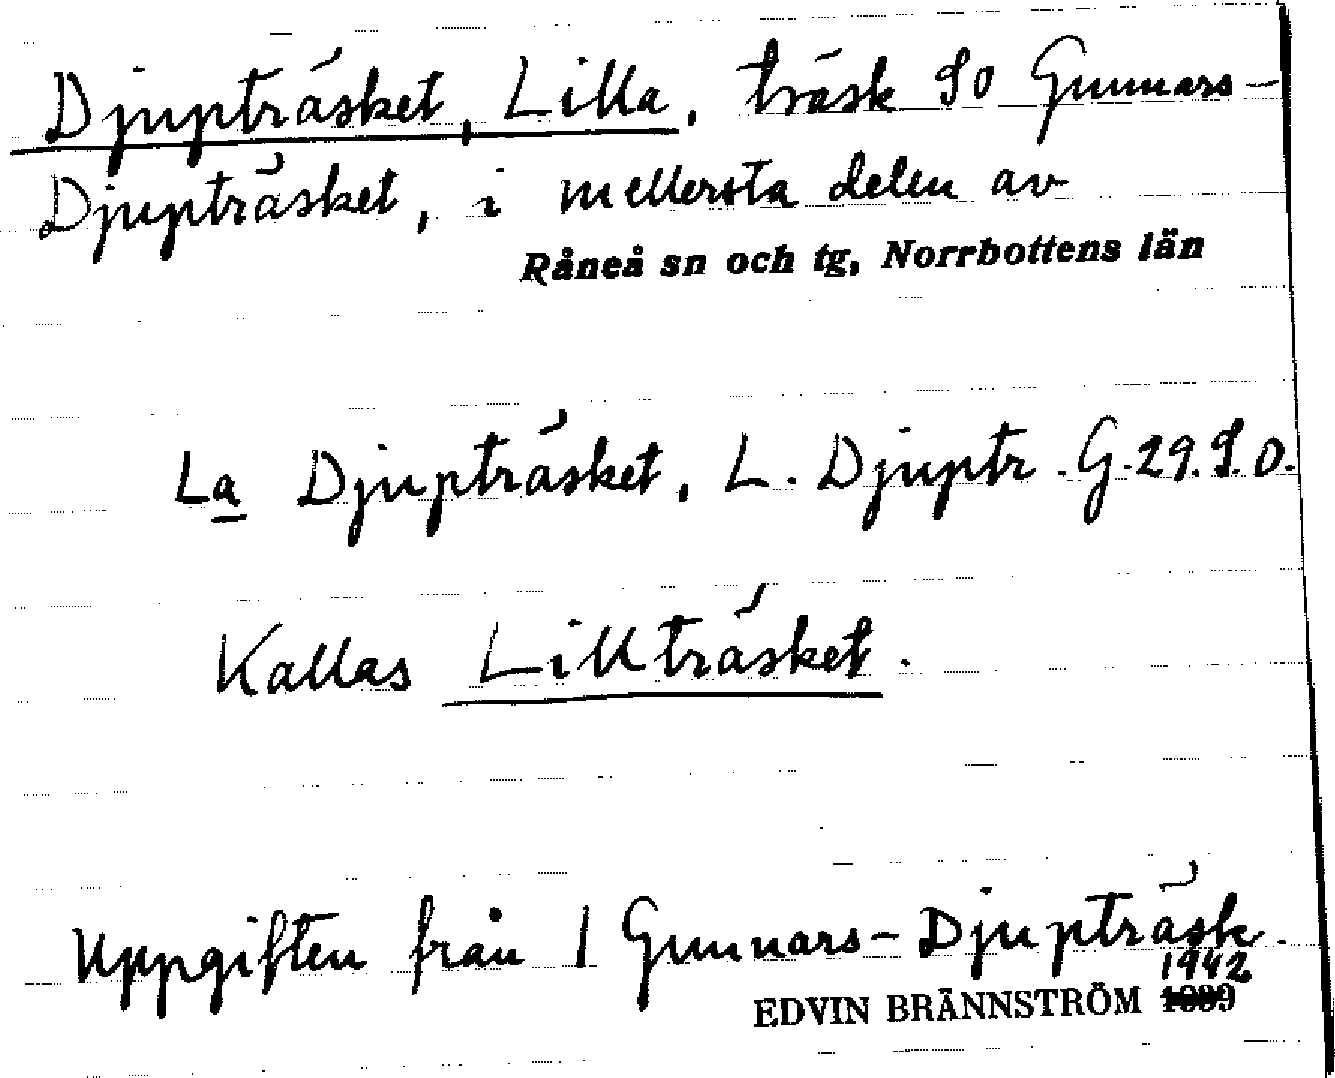 Djupträsket, Lilla, träsk SO Gunnars-
Djupträsket, i mellersta delen av
Råneå sn och tg, Norrbottens län
La Djupträsket, L. Djuptr. G. 29. S.O.
Kallas Lillträsket.
Uppgiften från 1 Gunnars-Djupträsk.
1942
EDVIN BRÄNNSTRÖM